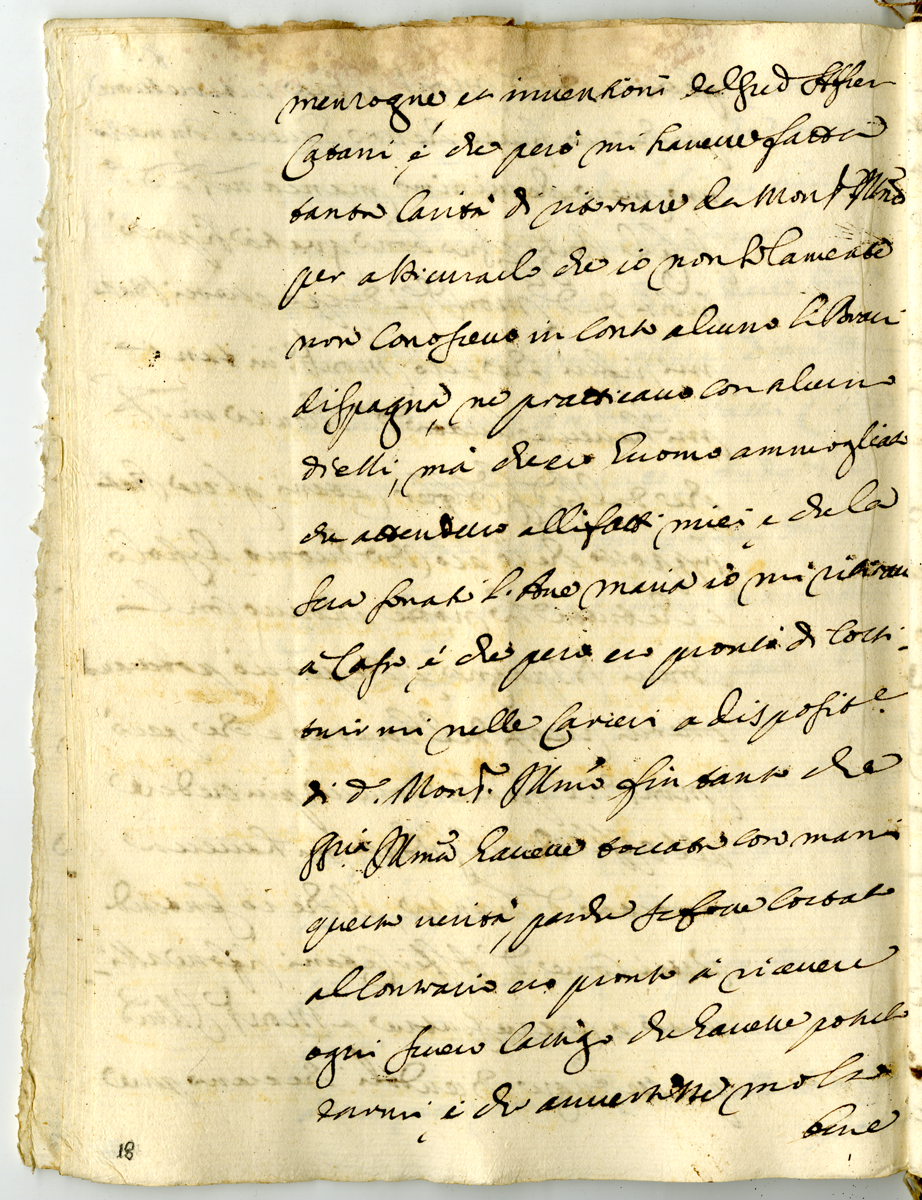 menzogne, et inventioni del sud.o Alfier
Catani, è che però mi havesse fatta
tanta Carità di ritornare da Mons.r Ill.mo
per assicurarlo che io non solamente
non Conoscevo in Conto alcuno li Bravi
di spagna, ne pratticavo con alcun
di essi, mà che ero huomo ammogliato
che attendevo alli fatti miei, e che la
sera sonata l'Ave maria io mi ritiravo
à Casa, è che però ero pronto di Costi-
tuirmi nelle Carceri a disposit.e
di d.o Mons.r Ill.mo fin tanto che
S.ria Ill.ma havesse toccato con mani
questa verità, perche se fosse Costato
al Contrario ero pronto à ricevere
ogni severo Castigo che havesse potuto
darmi, e che avvertisse molto
bene
18